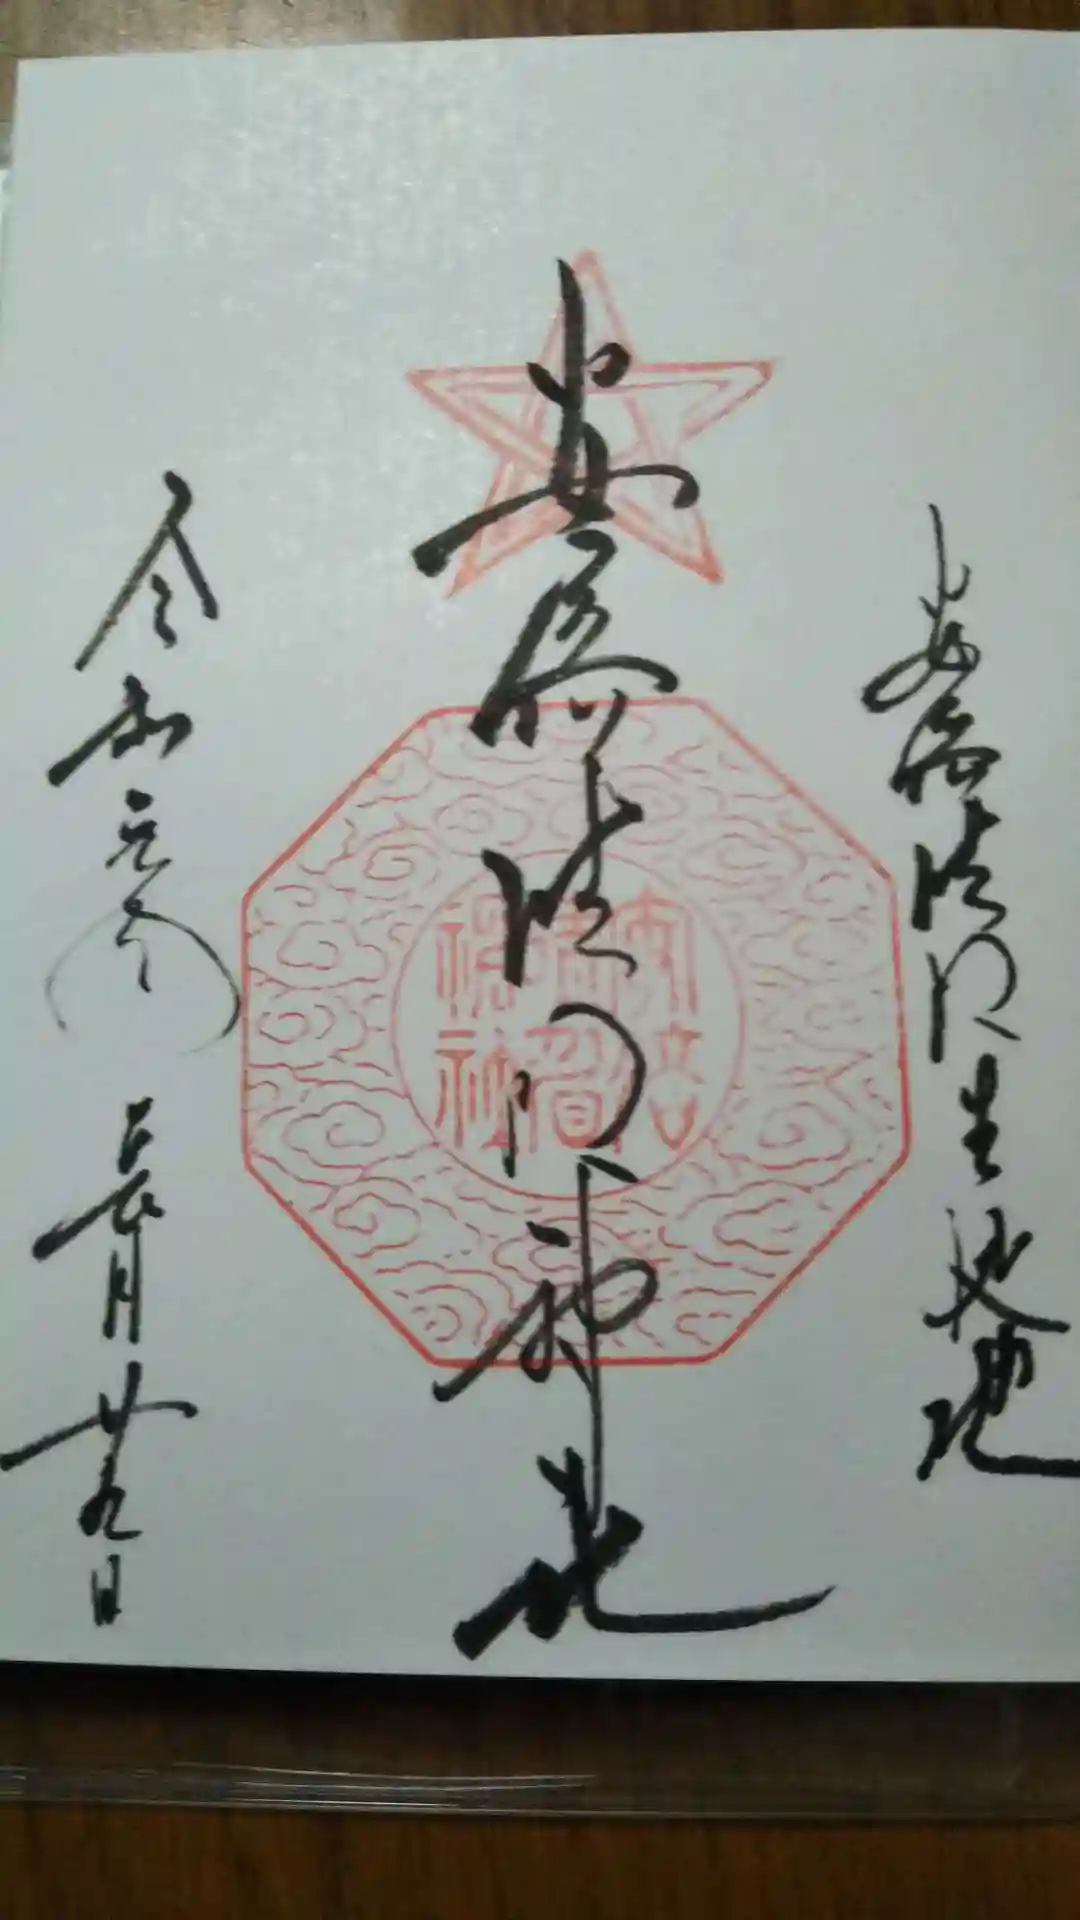 安倍晴明生誕地
安倍晴明神社
令和元年 長月廿九日
安倍晴明神社